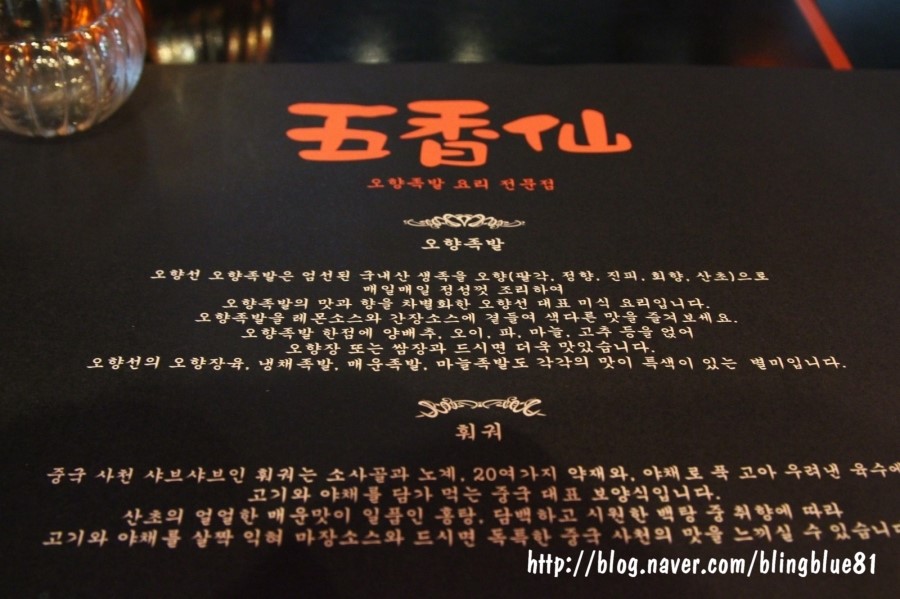 五香仙
오향족발 요리 전문점
오향족발
오향선 오향족발은 엄선된 국내산 생족을 오향(팔각, 정향, 진피, 회향, 산초)으로
매일매일 정성껏 조리하여
오향족발의 맛과 향을 차별화한 오향선 대표 미식 요리입니다.
오향족발을 레몬소스와 간장소스에 곁들여 색다른 맛을 즐겨보세요.
오향족발 한점에 양배추, 오이, 파, 마늘, 고추 등을 얹어
오향장 또는 쌈장과 드시면 더욱 맛있습니다.
오향선의 오향장육, 냉채족발, 매운족발, 마늘족발도 각각의 맛이 특색이 있는 별미입니다.
훠궈
중국 사천 샤브샤브인 훠궈는 소사골과 노계, 20여가지 약재와, 야채로 푹 고아 우려낸 육수에
고기와 야채를 담가 먹는 중국 대표 보양식입니다.
산초의 얼얼한 매운맛이 일품인 홍탕, 담백하고 시원한 백탕 중 취향에 따라
고기와 야채를 살짝 익혀 마장소스와 드시면 독특한 중국 사천의 맛을 느끼실 수 있습니다
http://blog.naver.com/blingblue81